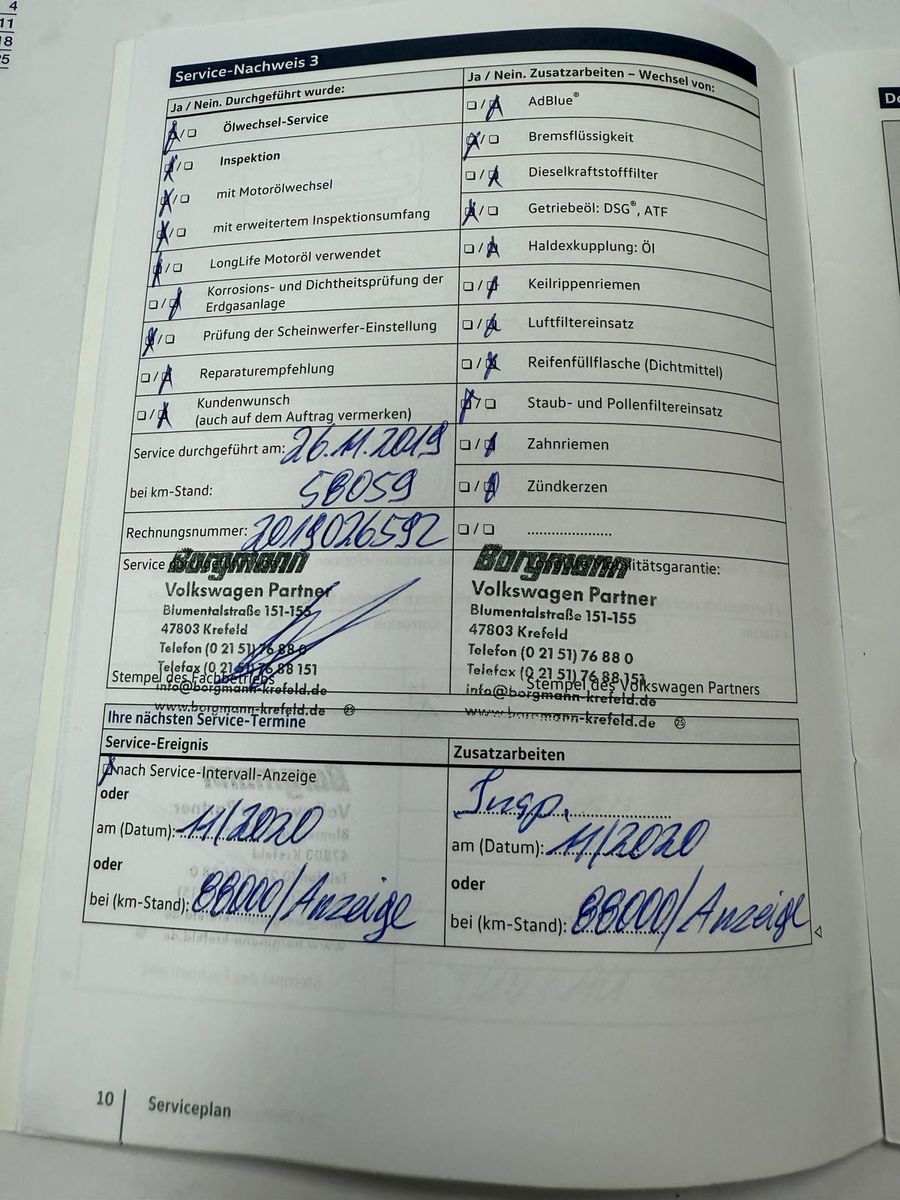 4
11
18
25
Service-Nachweis 3
Ja / Nein. Durchgeführt wurde:
Ölwechsel-Service
Inspektion
mit Motorölwechsel
mit erweitertem Inspektionsumfang
LongLife Motoröl verwendet
Korrosions- und Dichtheitsprüfung der
Erdgasanlage
Prüfung der Scheinwerfer-Einstellung
Reparaturempfehlung
Kundenwunsch
(auch auf dem Auftrag vermerken)
Service durchgeführt am: 26.11.2019
bei km-Stand: 58059
Rechnungsnummer: 2019026592
Ja / Nein. Zusatzarbeiten – Wechsel von:
AdBlue®
Bremsflüssigkeit
Dieselkraftstofffilter
Getriebeöl: DSG®, ATF
Haldexkupplung: Öl
Keilrippenriemen
Luftfiltereinsatz
Reifenfüllflasche (Dichtmittel)
Staub- und Pollenfiltereinsatz
Zahnriemen
Zündkerzen
.....................
Service
Borgmann
Volkswagen Partner
Blumentalstraße 151-155
47803 Krefeld
Telefon (0 21 51) 76 88 0
Telefax (0 21 51) 76 88 151
Stempel des Fachbetriebs
info@borgmann-krefeld.de
www.borgmann-krefeld.de 25
Borgmann
Mobilitätsgarantie:
Volkswagen Partner
Blumentalstraße 151-155
47803 Krefeld
Telefon (0 21 51) 76 88 0
Telefax (0 21 51) 76 88 151
Stempel des Volkswagen Partners
info@borgmann-krefeld.de
www.borgmann-krefeld.de 25
Ihre nächsten Service-Termine
Service-Ereignis
nach Service-Intervall-Anzeige
oder
am (Datum): 11/2020
oder
bei (km-Stand): 88000/Anzeige
Zusatzarbeiten
Insp.
am (Datum): 11/2020
oder
bei (km-Stand): 88000/Anzeige
10
Serviceplan